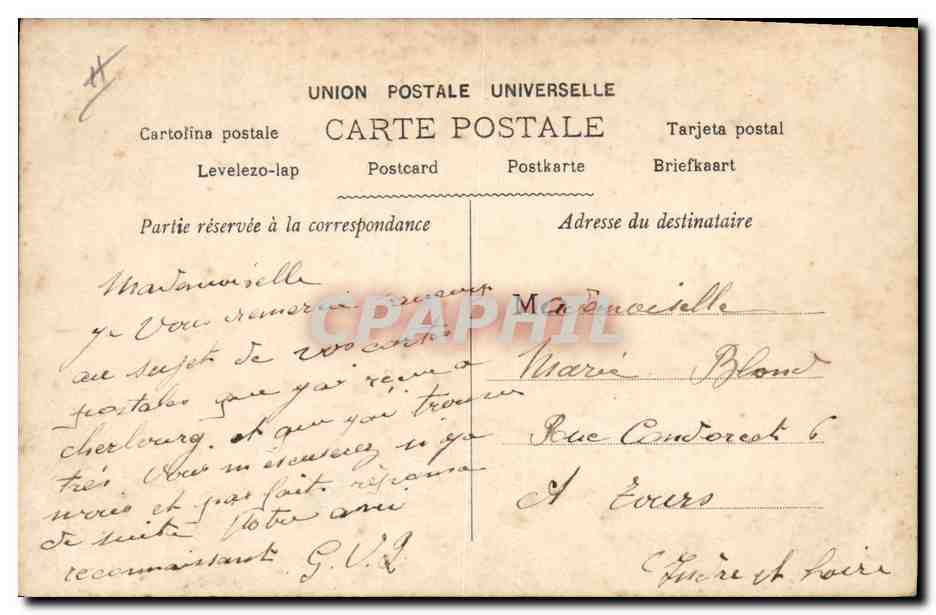 UNION POSTALE UNIVERSELLE
Cartolina postale CARTE POSTALE Tarjeta postal
Levelezo-lap Postcard Postkarte Briefkaart
Partie réservée à la correspondance
Mademoiselle
je vous remercie beaucoup
au sujet de vos cartes
postales que j'ai reçu a
cherbourg, et que j'ai trouver
très vous m'escuserez si j'ai
et pas fait réponse
de suite Votre ami
reconnaissant G. V.
Adresse du destinataire
Mademoiselle
Marie Blond
Rue Condorcet 6
A Tours
Indre et Loire
CPAPHIL